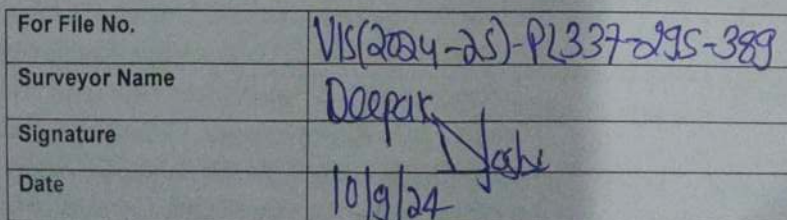 For File No. VIS(2024-25)-PL337-295-389
Surveyor Name Deepak
Signature Joshi
Date 10/9/24